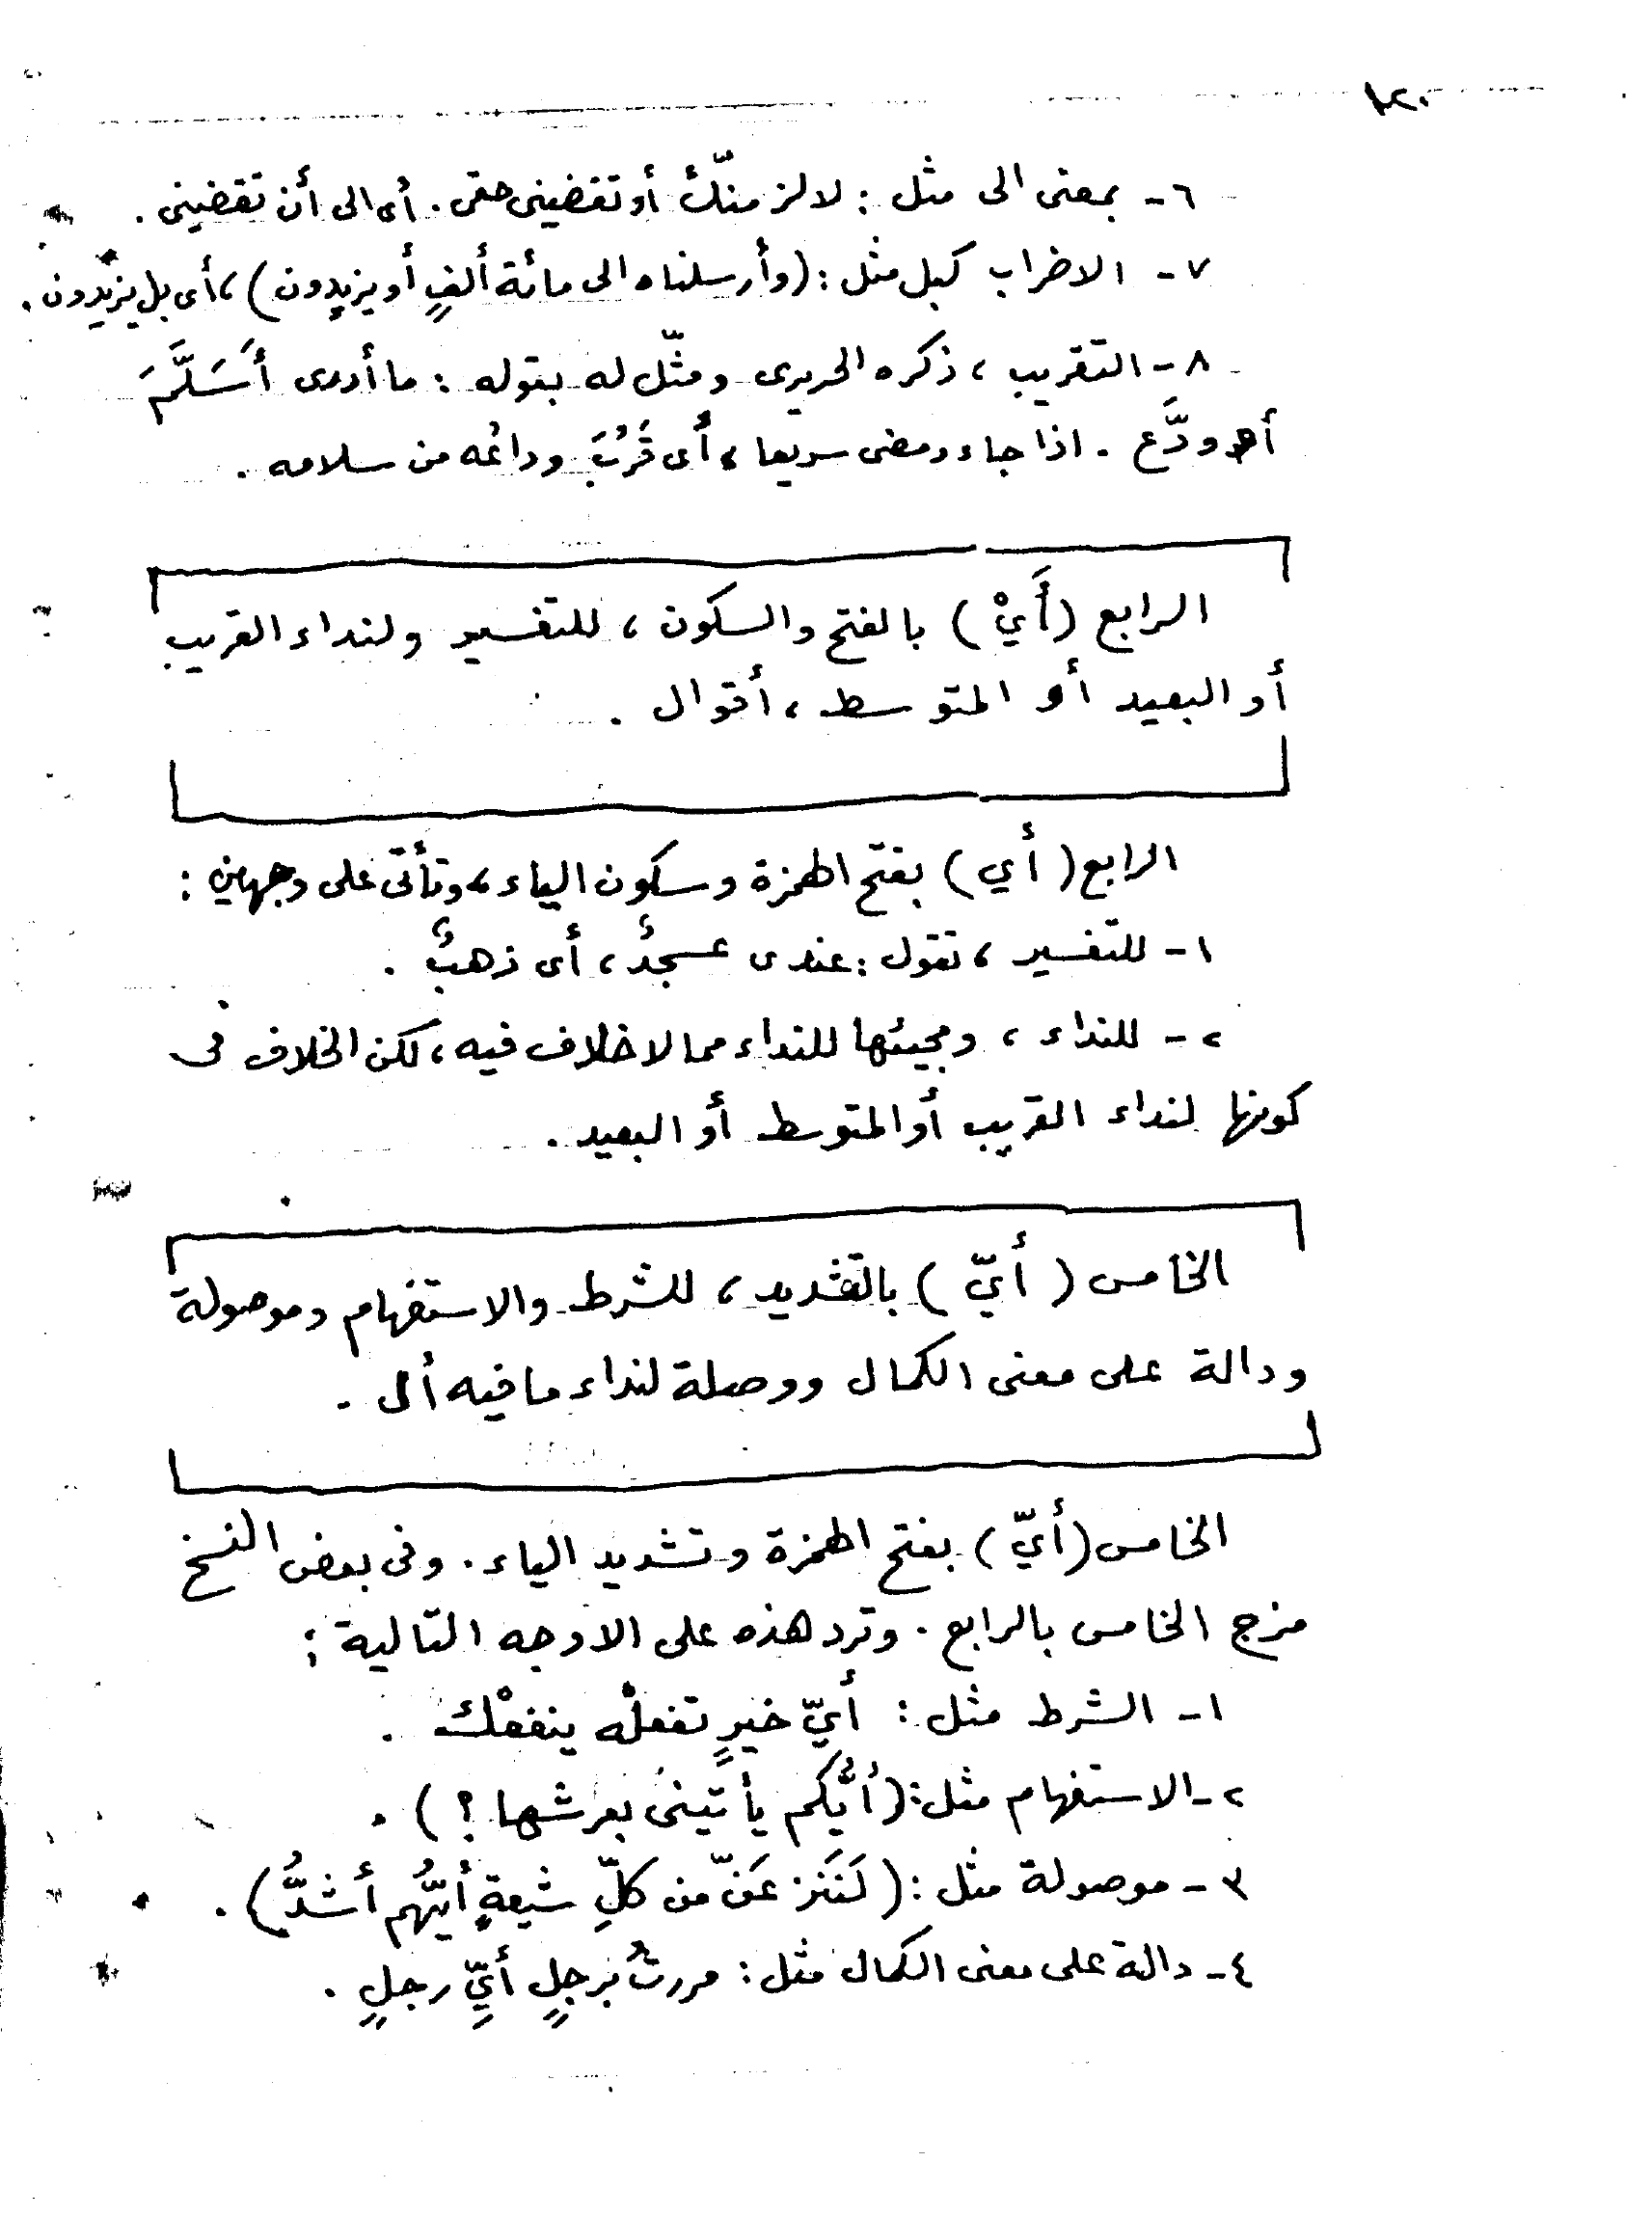 ١٢٠
٦- بمعنى الى مثل : لالزمنّك أو تقضينى حقى . أى الى أن تقضينى .
٧- الاضراب كبل مثل : (وأرسلناه الى مائة ألفٍ أو يزيدون) ، أى بل يزيدون .
٨- التقريب ، ذكره الحريرى ومثّل له بقوله : ما أدرى أَسَلَّمَ
أو ودَّع . اذا جاء ومضى سريعا ، أى قَرُبَ وداعُه من سلامه .
الرابع (أَيْ) بالفتح والسكون ، للتفسير ولنداء القريب
أو البعيد أو المتوسط ، أقوال .
الرابع (أي) بفتح الهمزة وسكون الياء ، وتأتى على وجهين :
١- للتفسير ، تقول : عندى عسجدٌ ، أى ذهبٌ .
٢- للنداء ، ومجيئها للنداء مما لا خلاف فيه ، لكن الخلاف فى
كونها لنداء القريب أو المتوسط أو البعيد .
الخامس (أيّ) بالتشديد ، للشرط والاستفهام وموصولة
ودالة على معنى الكمال ووصلة لنداء ما فيه أل .
الخامس (أيّ) بفتح الهمزة وتشديد الياء . وفى بعض النسخ
مزج الخامس بالرابع . وترد هذه على الاوجه التالية :
١- الشرط مثل : أيّ خيرٍ تفعلْه ينفعْك .
٢- الاستفهام مثل : (أيُّكم يأتينى بعرشها ؟) .
٣- موصولة مثل : (لَنَنزعَنّ من كلِّ شيعةٍ أيُّهم أشدُّ) .
٤- دالة على معنى الكمال مثل : مررتُ برجلٍ أيِّ رجلٍ .